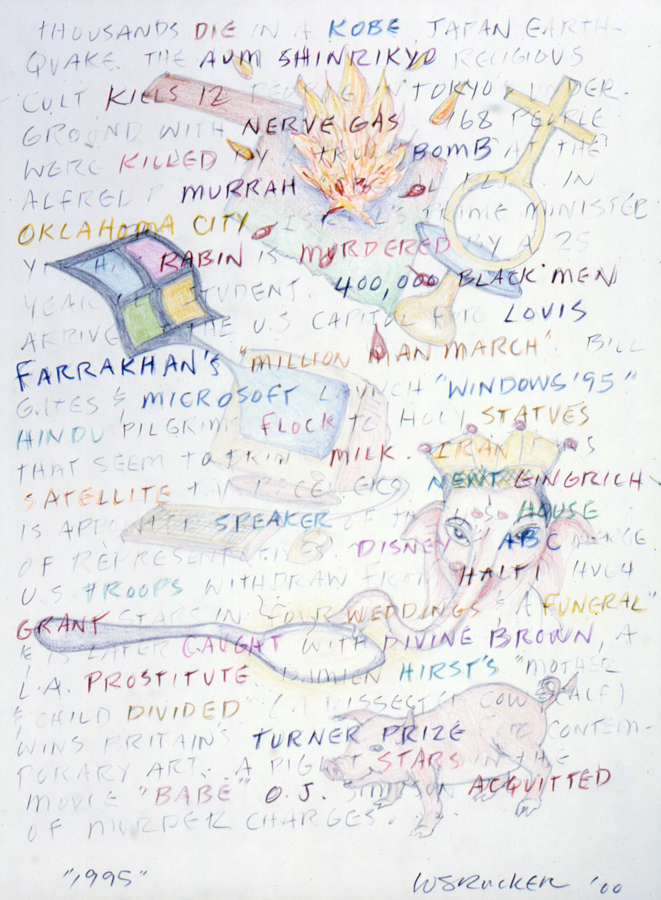 THOUSANDS DIE IN A KOBE, JAPAN EARTH-
QUAKE. THE AUM SHINRIKYO RELIGIOUS
CULT KILLS 12 PEOPLE IN TOKYO UNDER-
GROUND WITH NERVE GAS 168 PEOPLE
WERE KILLED BY A TRUCK BOMB AT THE
ALFRED P MURRAH IN
OKLAHOMA CITY. ISRAEL'S PRIME MINISTER
RABIN IS MURDERED BY A 25
YEAR OLD STUDENT. 400,000 BLACK MEN
ARRIVE AT THE U.S CAPITOL FOR LOUIS
FARRAKHAN'S "MILLION MAN MARCH". BILL
GATES & MICROSOFT LAUNCH "WINDOWS '95"
HINDU PILGRIMS FLOCK TO HOLY STATUES
THAT SEEM TO DRINK MILK. IRAN
SATELLITE T.V. RECEIVERS NEWT GINGRICH
IS APPOINTED SPEAKER OF THE HOUSE
OF REPRESENTATIVES. DISNEY ABC
U.S. TROOPS WITHDRAW FROM HAITI HUGH
GRANT STARS IN "FOUR WEDDINGS & A FUNERAL"
& IS LATER CAUGHT WITH DIVINE BROWN, A
L.A. PROSTITUTE. DAMIEN HIRST'S "MOTHER
& CHILD DIVIDED" (A DISSECTED COW & CALF)
WINS BRITAIN'S TURNER PRIZE FOR CONTEM-
PORARY ART. A PIG STARS IN THE
MOVIE "BABE" O.J. SIMPSON ACQUITTED
OF MURDER CHARGES.
"1995"
WSRUCKER '00